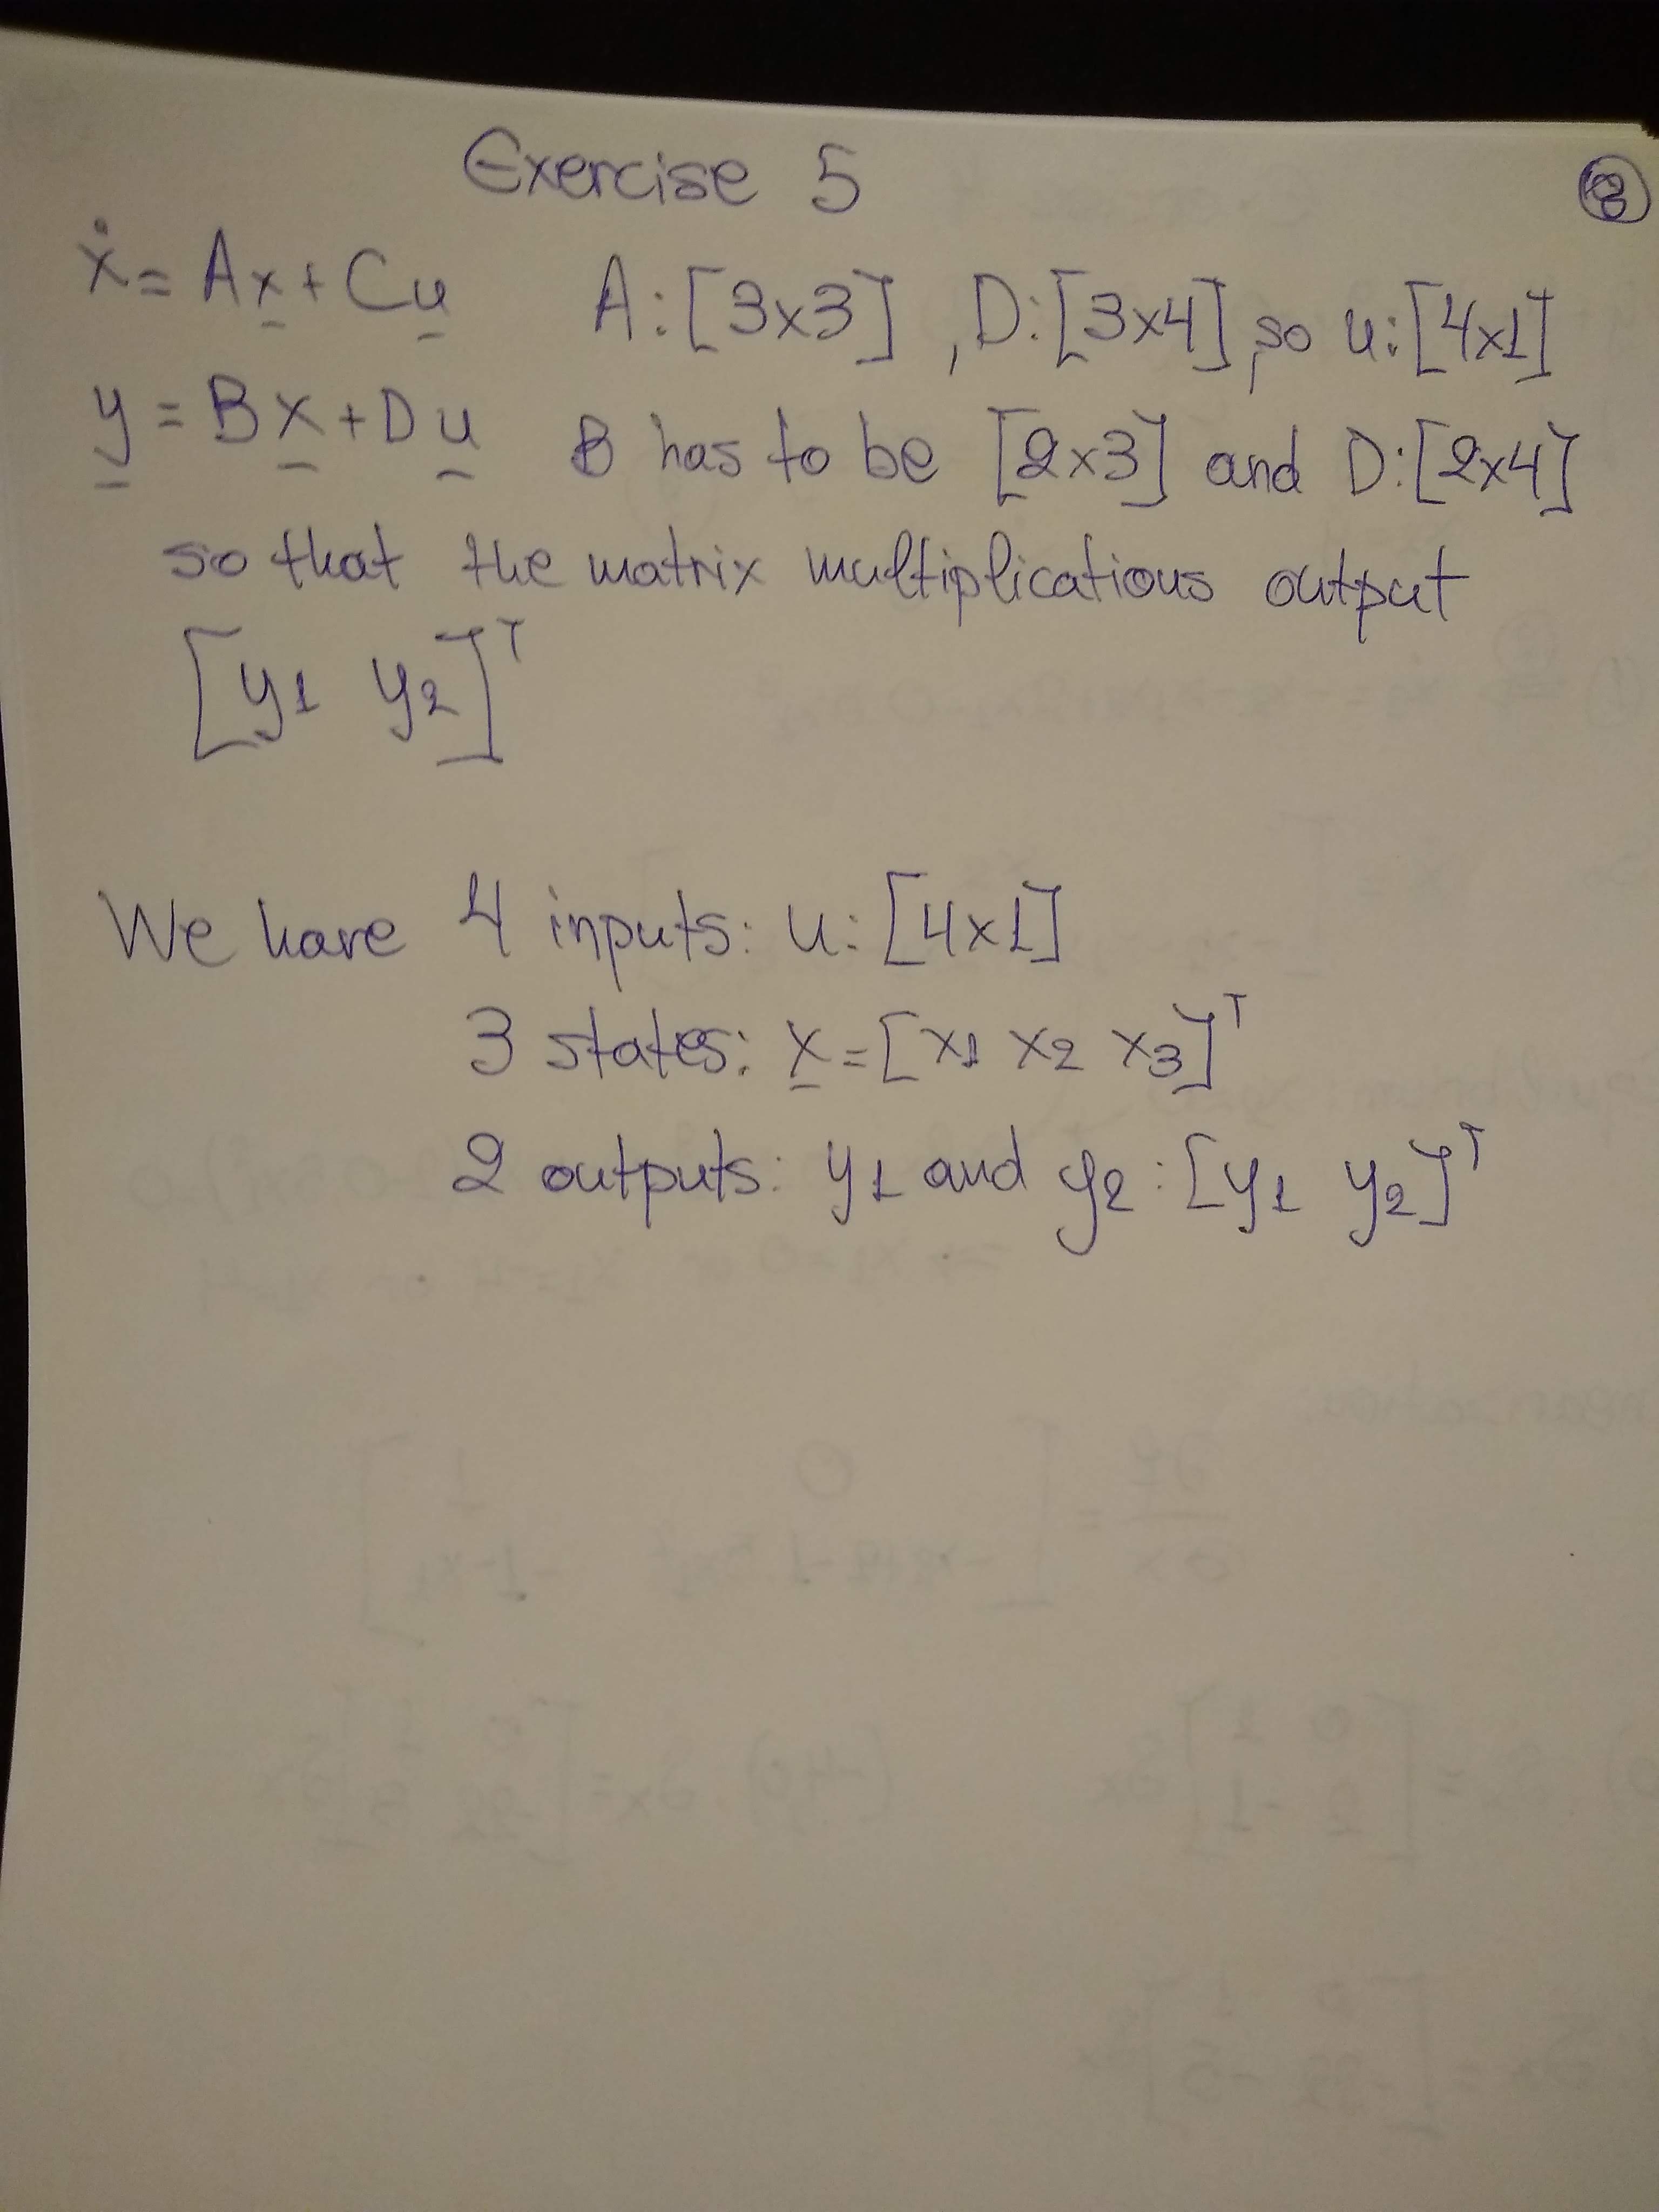 Exercise 5
ẋ = Ax + Cu A:[3x3], D:[3x4], so u:[4x1]
y = Bx + Du B has to be [2x3] and D:[2x4]
so that the matrix multiplications output
[y1 y2]ᵀ
We have 4 inputs: u:[4x1]
3 states: x = [x1 x2 x3]ᵀ
2 outputs: y1 and y2: [y1 y2]ᵀ